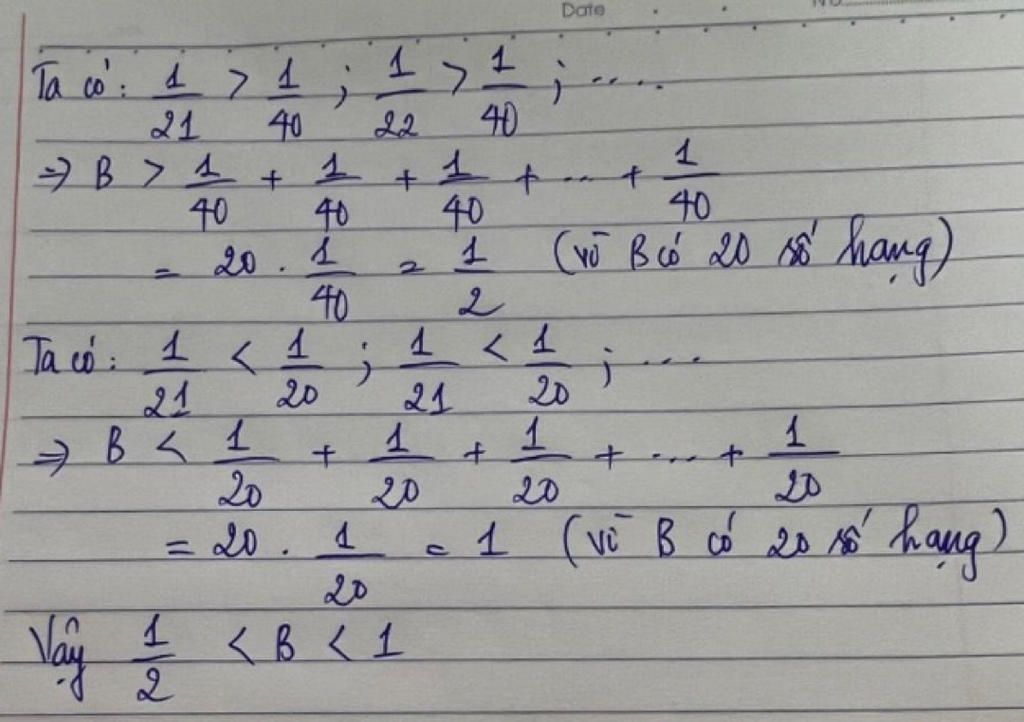 Date
Ta có: 1/21 > 1/40 ; 1/22 > 1/40 ; ....
=> B > 1/40 + 1/40 + 1/40 + ... + 1/40
= 20 . 1/40 = 1/2 (vì B có 20 số hạng)
Ta có: 1/21 < 1/20 ; 1/21 < 1/20 ; ...
=> B < 1/20 + 1/20 + 1/20 + ... + 1/20
= 20 . 1/20 = 1 (vì B có 20 số hạng)
Vậy 1/2 < B < 1